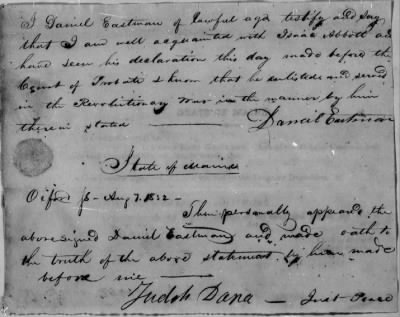 I Daniel Eastman of lawful age testify and say
that I am well acquainted with Isaac Abbott and
have seen his declaration this day made before the
Court of Probate & know that he enlisted and served
in the Revolutionary War in the manner by him
therein stated
Daniel Eastman
State of Maine
Oxford ss - Aug 7. 1832 -
Then personally appeared the
above signed Daniel Eastman and made oath to
the truth of the above statement by him made
before me
Judah Dana - Just Peace